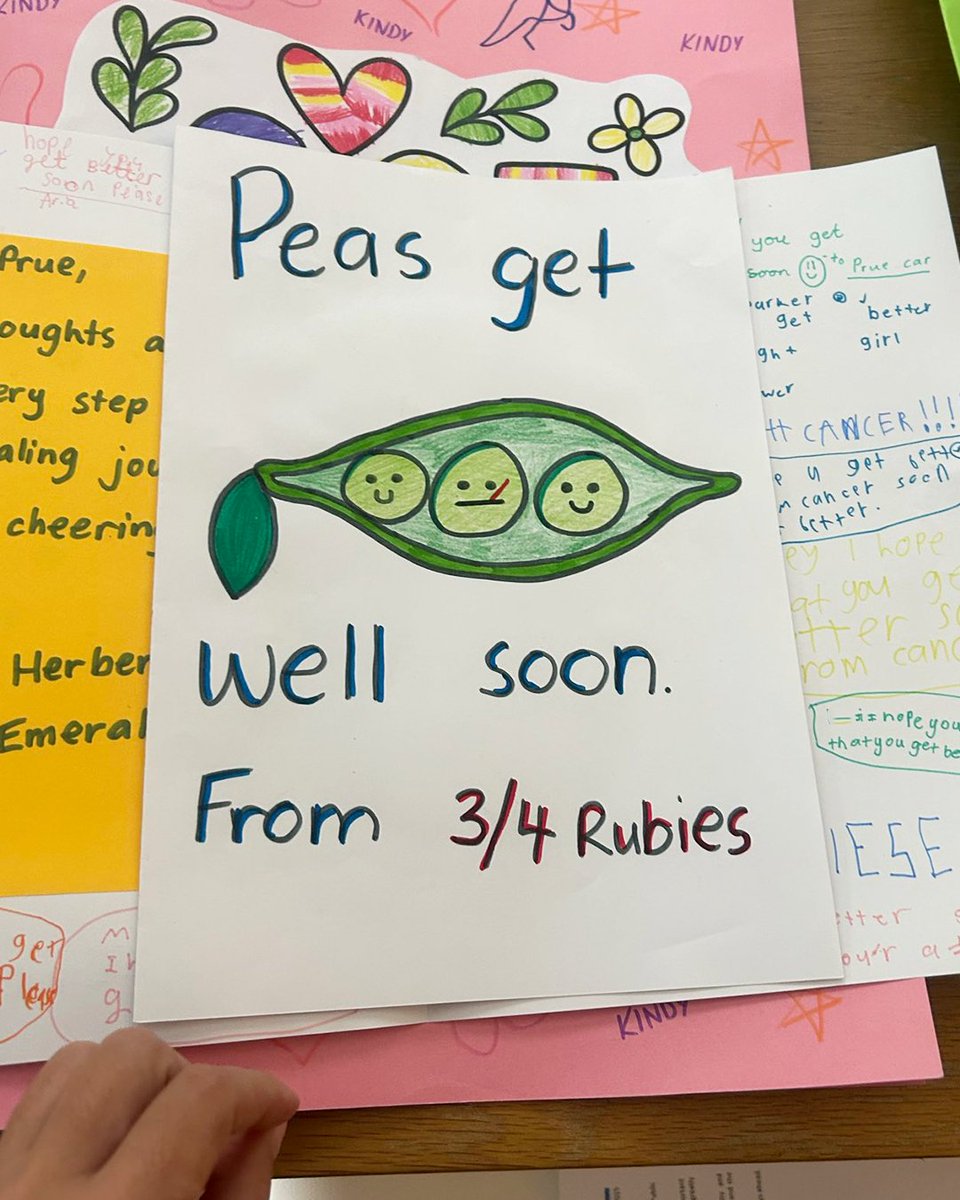 KINDY
KINDY
KINDY
hope you
get Better
soon Please
Prue,
oughts a
ery step
aling jou
cheering
Herber
Emeral
get
Please
Peas get
well soon.
From 3/4 Rubies
you get
soon to Prue car
arker
get better
ght girl
CANCER!!!!
e u get bette
m cancer soon
better.
ey I hope
at you ge
tter so
rom canc
i hope you
that you get be
IESE
etter s
KINDY